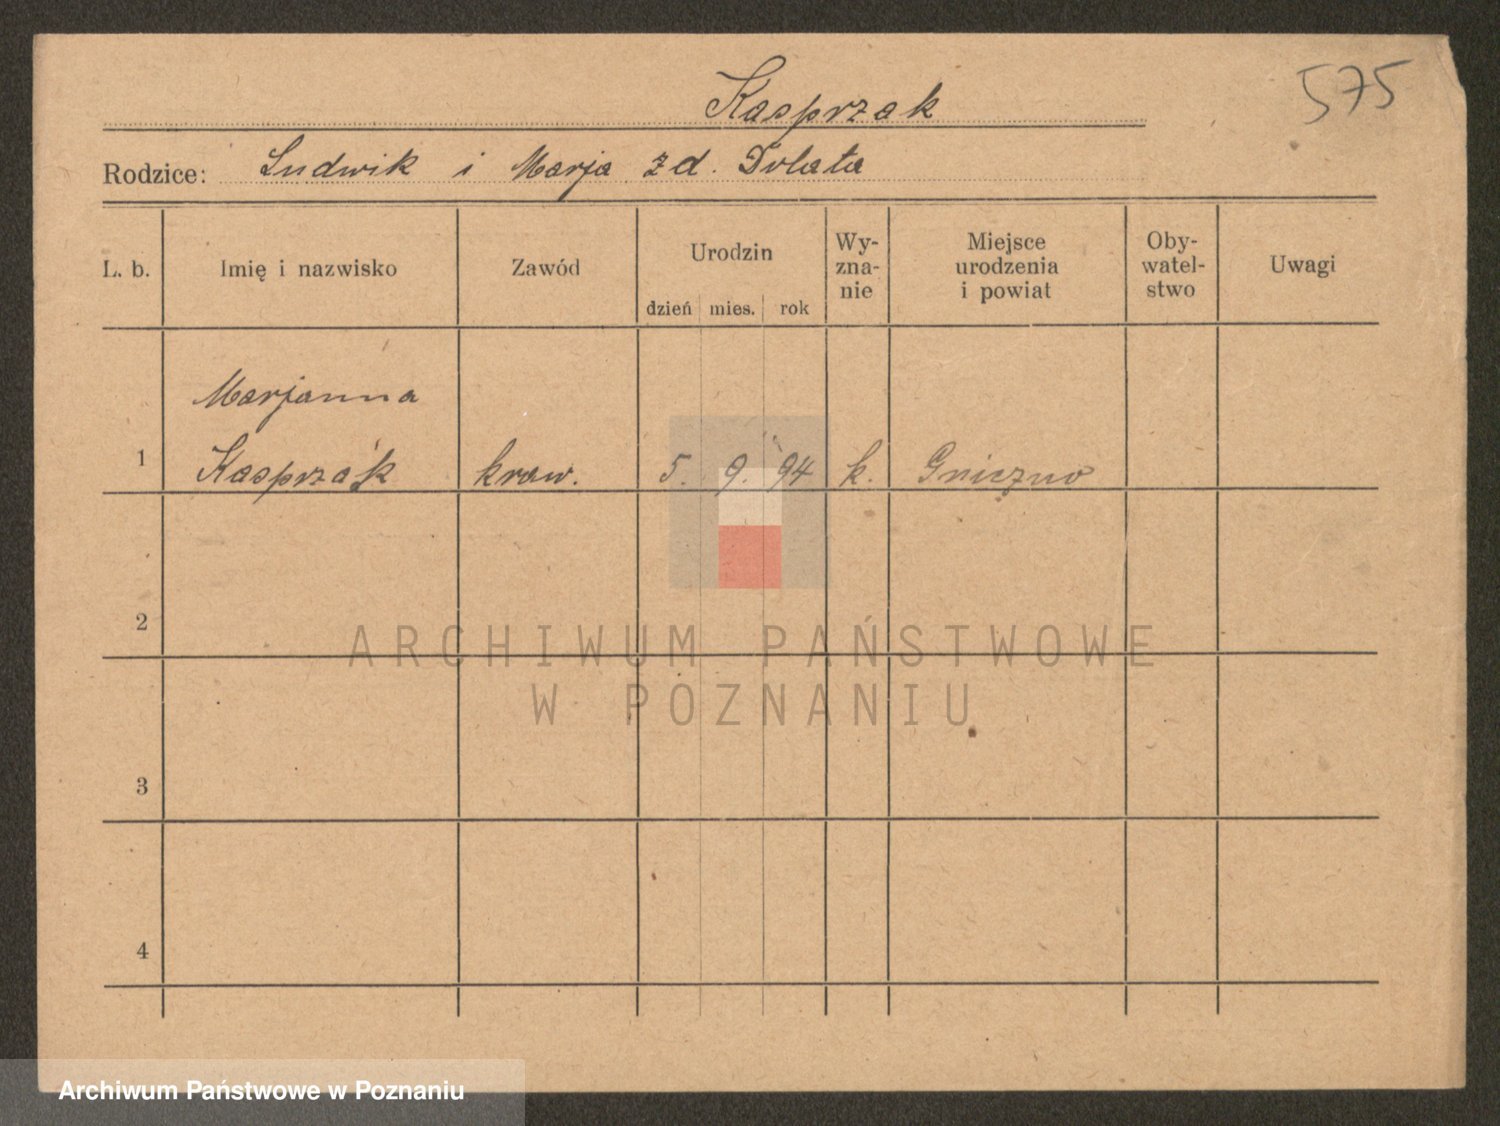 575
Kasprzak
Rodzice: Ludwik i Marja zd. Dolata
L. b. Imię i nazwisko Zawód Urodzin dzień mies. rok Wy-znanie Miejsce urodzenia i powiat Oby-watel-stwo Uwagi
Marjanna
1 Kasprzak kraw. 5. 9. 94 k. Gniezno
2
ARCHIWUM PAŃSTWOWE
W POZNANIU
3
4
Archiwum Państwowe w Poznaniu